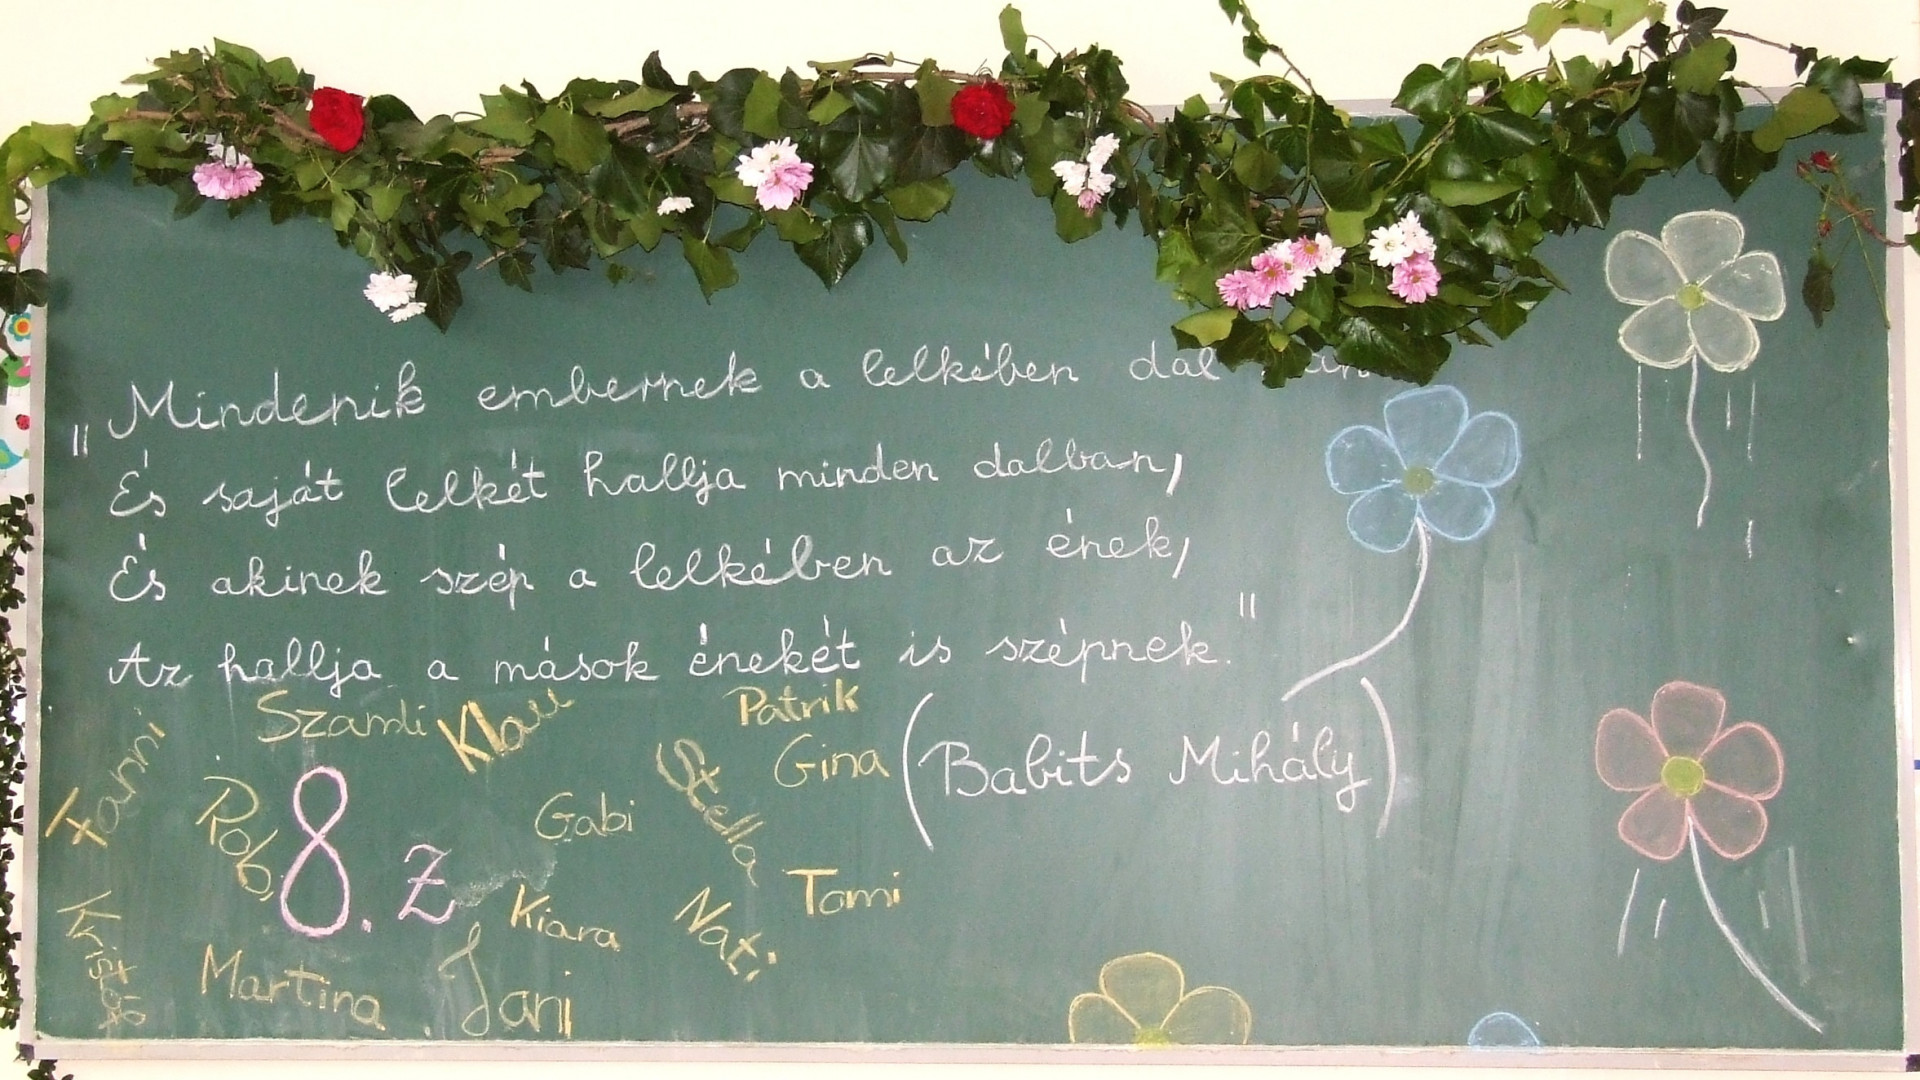 „Mindenik embernek a lelkében dal
És saját lelkét hallja minden dalban,
És akinek szép a lelkében az ének,
Az hallja a mások énekét is szépnek."
(Babits Mihály)
Szamli
Klau
Patrik
Gina
Fanni
Rob
8. z
Gabi
Stella
Tomi
Kiara
Nati
Kristóf
Martina
Jani